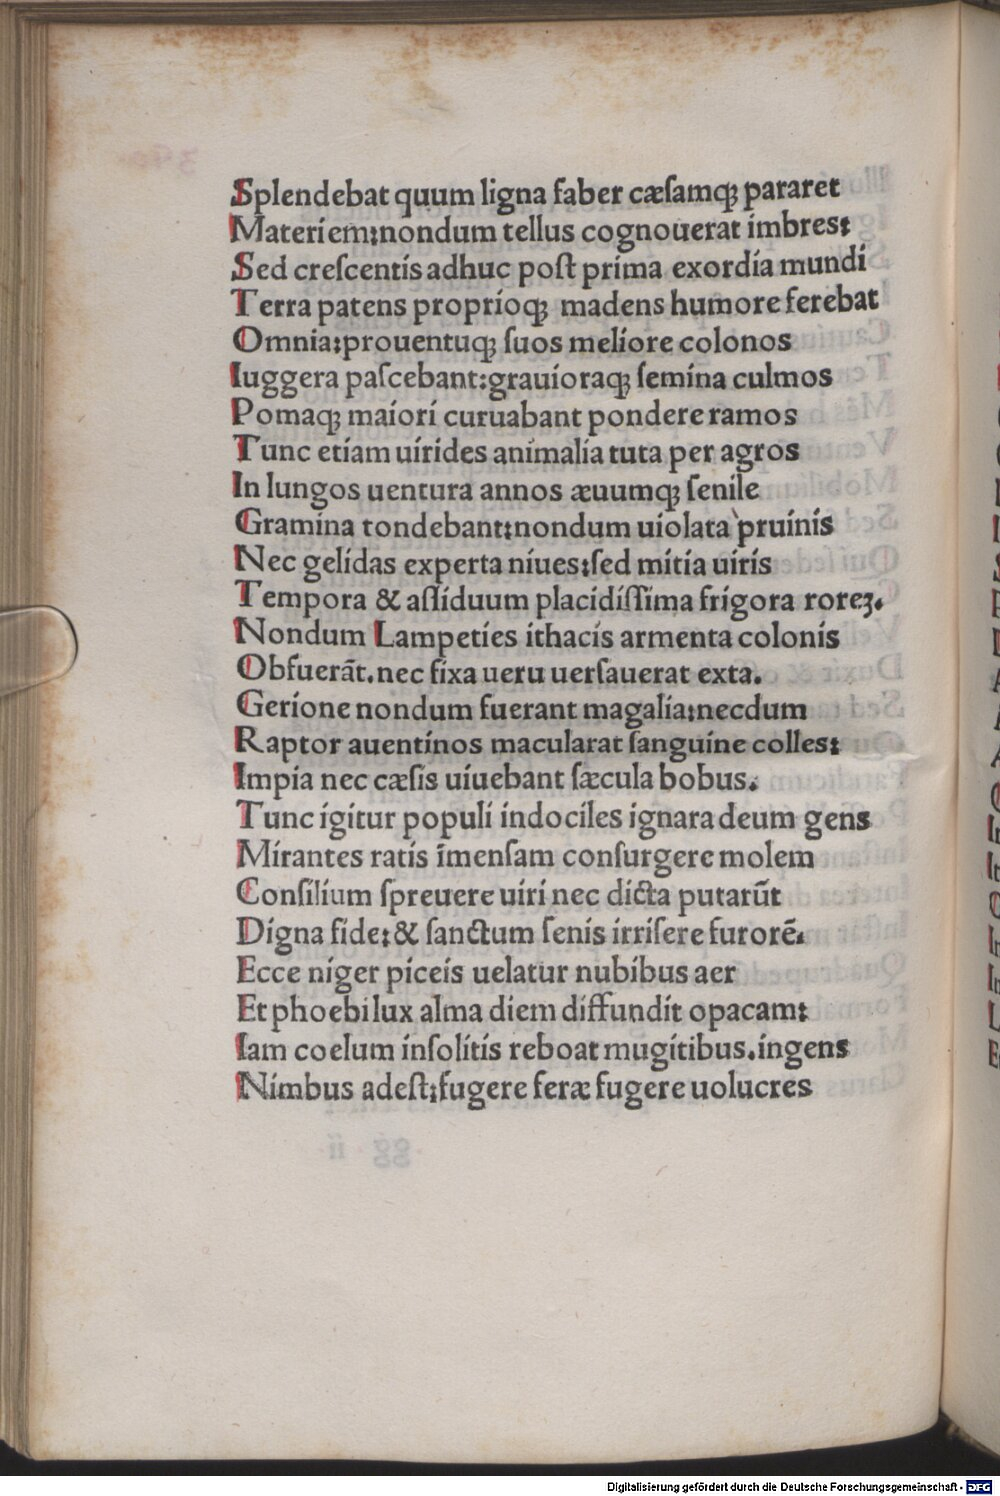 Splendebat quum ligna faber cæſamqꝫ pararet
Materiem:nondum tellus cognouerat imbres:
Sed creſcentis adhuc poſt prima exordia mundi
Terra patens proprioqꝫ madens humore ferebat
Omnia:prouentuqꝫ ſuos meliore colonos
Iuggera paſcebant:grauioraqꝫ ſemina culmos
Pomaqꝫ maiori curuabant pondere ramos
Tunc etiam uirides animalia tuta per agros
In lungos uentura annos æuumqꝫ ſenile
Gramina tondebant:nondum uiolata pruinis
Nec gelidas experta niues:ſed mitia uiris
Tempora & aſſiduum placidiſſima frigora roreꝫ.
Nondum Lampeties ithacis armenta colonis
Obfuerāt.nec fixa ueru uerſauerat exta.
Gerione nondum fuerant magalia:necdum
Raptor auentinos macularat ſanguine colles:
Impia nec cæſis uiuebant ſæcula bobus.
Tunc igitur populi indociles ignara deum gens
Mirantes ratis īmenſam conſurgere molem
Conſilium ſpreuere uiri nec dicta putarūt
Digna fide:& ſanctum ſenis irriſere furorē.
Ecce niger piceis uelatur nubibus aer
Et phoebi lux alma diem diffundit opacam:
Iam coelum inſolitis reboat mugitibus.ingens
Nimbus adeſt:fugere feræ fugere uolucres
Digitalisierung gefördert durch die Deutsche Forschungsgemeinschaft - DFG